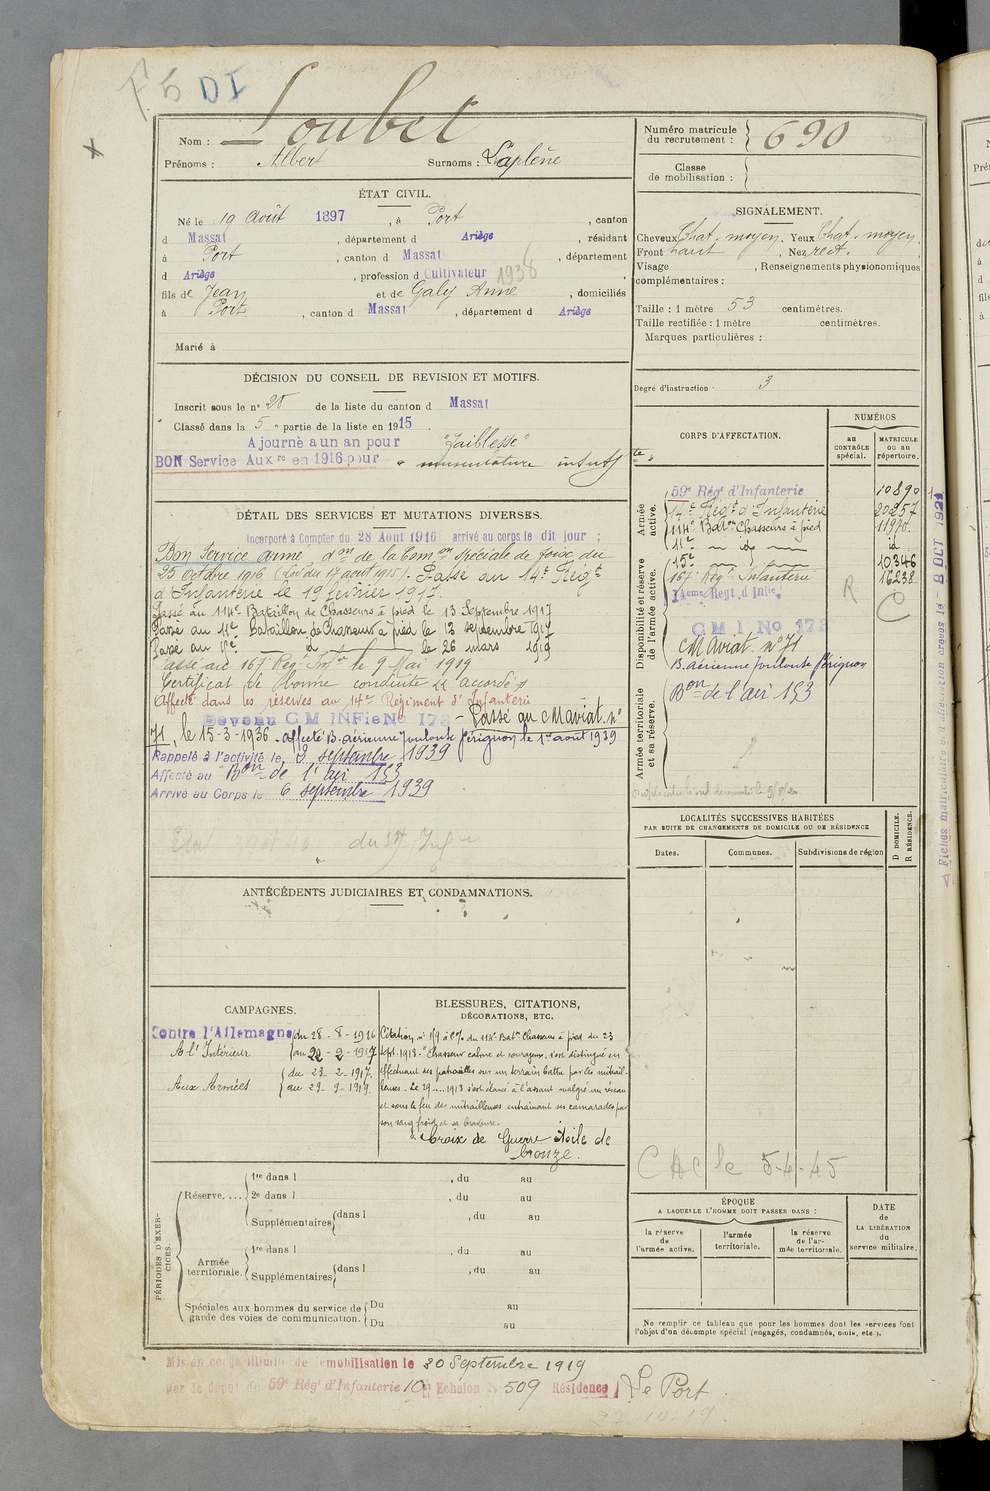 F5 DI
Nom : Loubet
Prénoms : Albert Surnoms : Laplène
Numéro matricule du recrutement : 690
Classe de mobilisation :
ÉTAT CIVIL.
Né le 19 Août 1897, à Port, canton
d Massat, département d Ariège, résidant
à Port, canton d Massat, département
d Ariège, profession d Cultivateur 1938
fils de Jean et de Galy Anne, domiciliés
à Port, canton d Massat, département d Ariège
Marié à
SIGNALEMENT.
Cheveux Chat. moyen, Yeux Chat. moyen,
Front haut, Nez rect.
Visage , Renseignements physionomiques
complémentaires :
Taille : 1 mètre 53 centimètres.
Taille rectifiée : 1 mètre centimètres.
Marques particulières :
Degré d'instruction : 3
DÉCISION DU CONSEIL DE REVISION ET MOTIFS.
Inscrit sous le n° 28 de la liste du canton d Massat
Classé dans la 5e partie de la liste en 1915
Ajourné a un an pour "Faiblesse"
BON Service Auxre en 1916 pour " musculature insuff
DÉTAIL DES SERVICES ET MUTATIONS DIVERSES.
Incorporé à Compter du 28 Aout 1916 arrivé au corps le dit jour ;
Bon Service armé don de la Comon spéciale de Foix du
25 octobre 1916 (Loi du 17 août 1915). Passé au 14e Régt
d'Infanterie le 19 février 1917.
Passé au 114e Bataillon de Chasseurs à pied le 13 Septembre 1917
Passé au 11e Bataillon de Chasseurs à pied le 13 septembre 1917
Passé au 15e d° le 26 mars 1919
Passé au 167e Regt Infie le 9 Mai 1919
Certificat de Bonne conduite Accordé
Affecté dans les réserves au 14e Régiment d'Infanterie
Devenu C M INFie No 173 - Passé au CM aviat. n°
71, le 15-3-1936. affecté B. aérienne Toulouse Pérignon le 1er août 1939
Rappelé à l'activité le 3 septembre 1939
Affecté au Bon de l'air 153
Arrivé au Corps le 6 septembre 1939
CORPS D'AFFECTATION.
NUMÉROS
AU CONTRÔLE spécial.
MATRICULE OU AU répertoire.
Armée active.
59e Régt d'Infanterie 10890
14e Régt d'Infanterie 20257
114e Baton Chasseurs à pied 11970
11e — do — id
15e — — — 10346
Disponibilité et réserve de l'armée active.
167e Régt Infanterie 16238
14eme Regt d'Infie R
C M I No 173
CM Aviat. n° 71
B. aérienne Toulouse Pérignon
Armée territoriale et sa réserve.
Bon de l'air 153
Fiches matriculaire et d'affectation créées le - 8 OCT 1921
LOCALITÉS SUCCESSIVES HABITÉES
PAR SUITE DE CHANGEMENTS DE DOMICILE OU DE RÉSIDENCE
Dates. Communes. Subdivisions de région
D DOMICILE.
R RÉSIDENCE.
ANTÉCÉDENTS JUDICIAIRES ET CONDAMNATIONS.
CAMPAGNES.
Contre l'Allemagne du 28-8-1916
A l'Intérieur au 22-2-1917
du 23-2-1917.
Aux Armées au 29-9-1919.
BLESSURES, CITATIONS, DÉCORATIONS, ETC.
Citation à l'O du 114e Baton Chasseurs à pied du 23
sept. 1918. "Chasseur calme et courageux, s'est distingué en
effectuant des patrouilles sur un terrain battu par les mitrail-
leuses. Le 29 1918 s'est élancé à l'assaut malgré un réseau
et sous le feu des mitrailleuses entraînant ses camarades par
son sang froid et sa bravoure.
Croix de Guerre étoile de
bronze.
CAC le 5-4-45
PÉRIODES D'EXERCICES.
Réserve.... 1re dans l , du au
2e dans l , du au
Supplémentaires dans l , du au
Armée territoriale. 1re dans l , du au
Supplémentaires dans l , du au
Spéciales aux hommes du service de garde des voies de communication. Du au
Du au
ÉPOQUE
A LAQUELLE L'HOMME DOIT PASSER DANS :
la réserve de l'armée active.
l'armée territoriale.
la réserve de l'armée territoriale.
DATE de LA LIBÉRATION du service militaire.
Ne remplir ce tableau que pour les hommes dont les services font
l'objet d'un décompte spécial (engagés, condamnés, omis, etc.).
Mis en congé illimité de démobilisation le 30 Septembre 1919
par le dépot du 59e Régt d'Infanterie 10e Echelon N° 509 Résidence Le Port